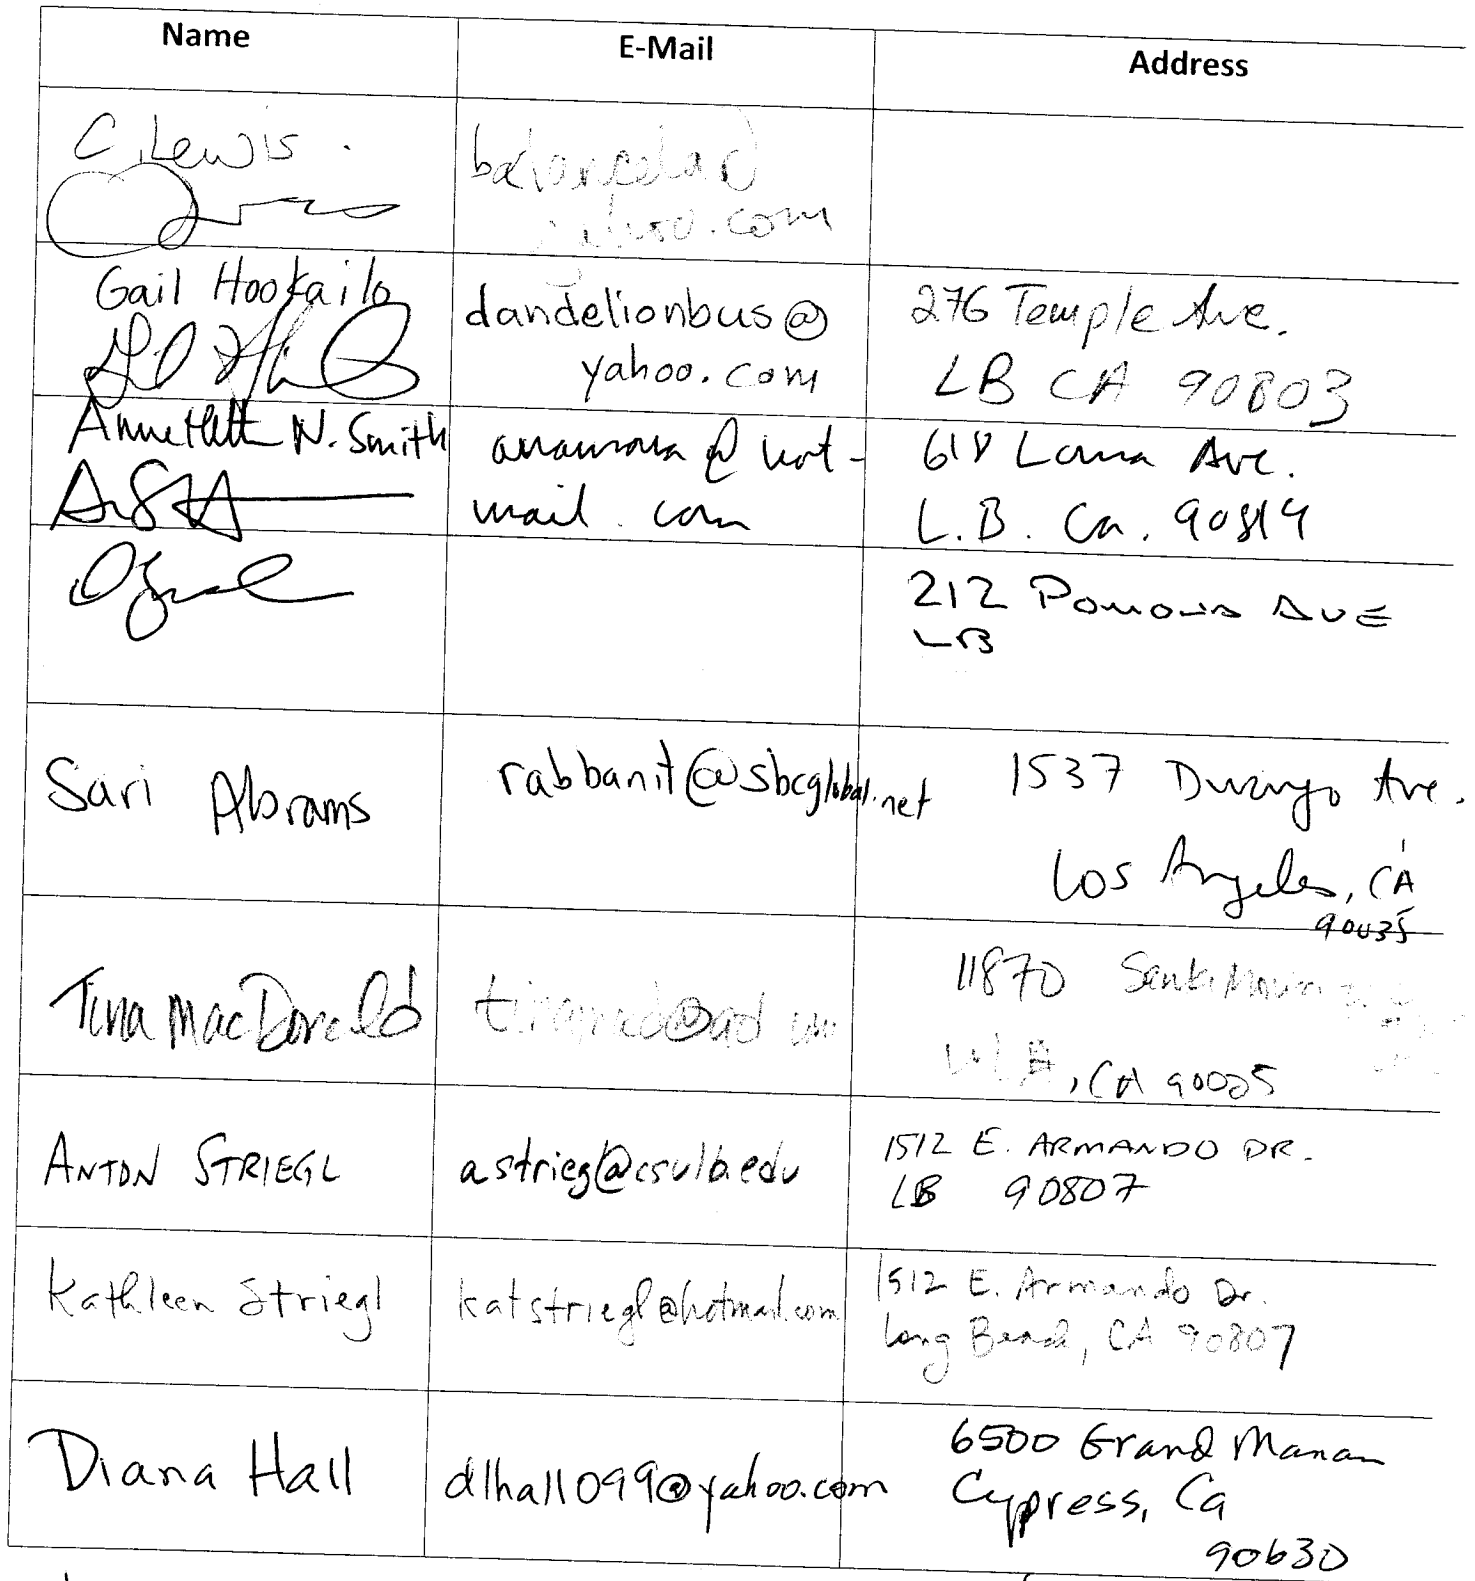 Name E-Mail Address
C. Lewis
yahoo.com
Gail Hookailo
dandelionbus@
yahoo.com
276 Temple Ave.
LB CA 90803
N. Smith
@ hot-
mail.com
618 Loma Ave.
L.B. Ca. 90814
212 Pomona AVE
LB
Sari Abrams
rabbanit@sbcglobal.net
1537 Durango Ave.
Los Angeles, CA
90035
Tina MacDonald
11870 Santa Monica
WLA, CA 90025
ANTON STRIEGL
astrieg@csulb.edu
1512 E. ARMANDO DR.
LB 90807
Kathleen Striegl
katstriegl@hotmail.com
1512 E. Armando Dr.
Long Beach, CA 90807
Diana Hall
dlhall099@yahoo.com
6500 Grand Manan
Cypress, Ca
90630